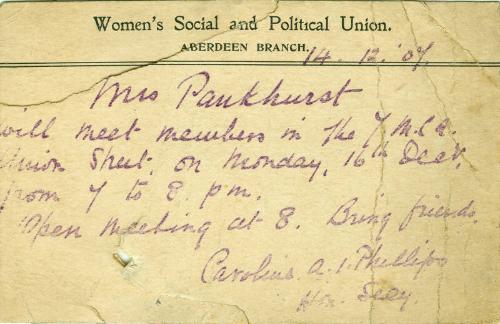 Women's Social and Political Union.
ABERDEEN BRANCH.
14. 12. '07
Mrs Pankhurst
will meet members in the Y.M.C.A.
Union Street, on Monday, 16th Decr,
from 7 to 8 p.m.
Open meeting at 8. Bring friends.
Caroline A. I. Phillips
Hon. Secy.